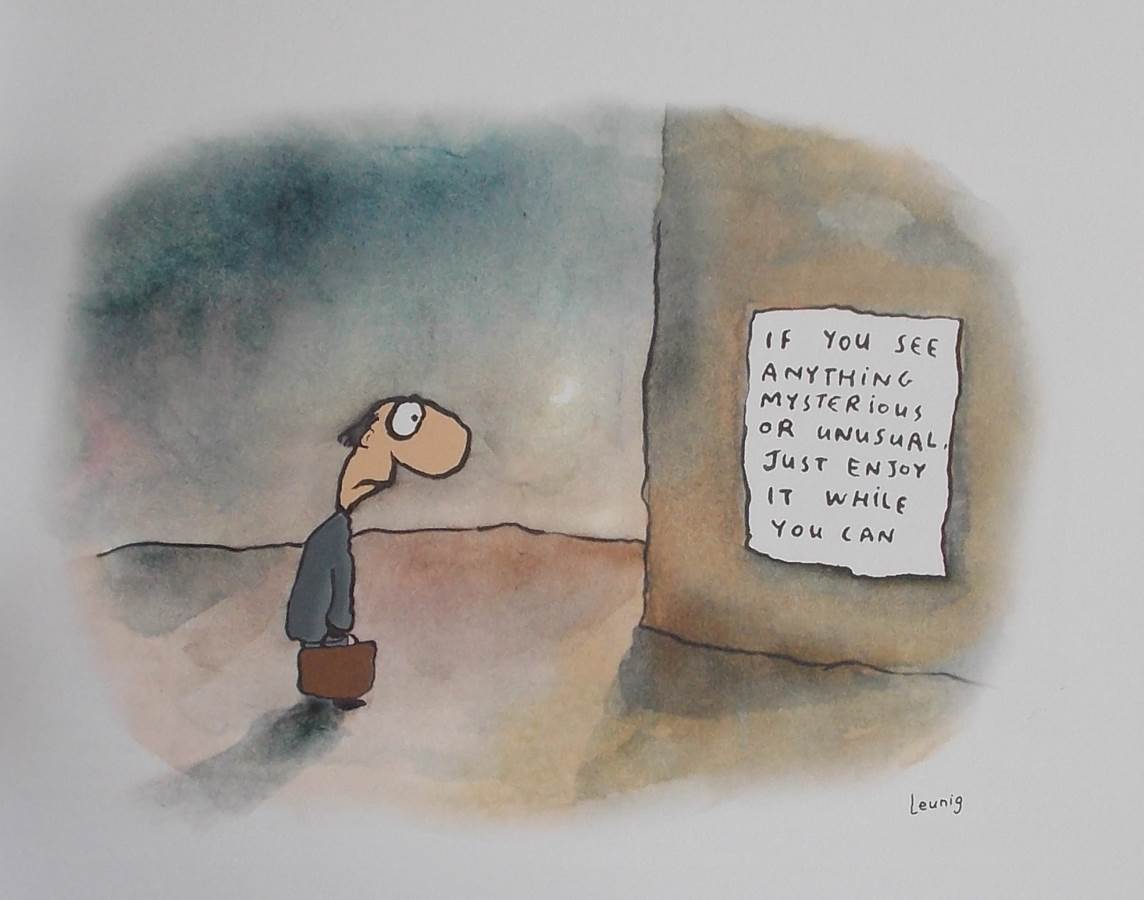 IF YOU SEE
ANYTHiNG
MYSTERiOUS
OR UNUSUAL.
JUST ENJOY
IT WHiLE
YOU CAN
Leunig